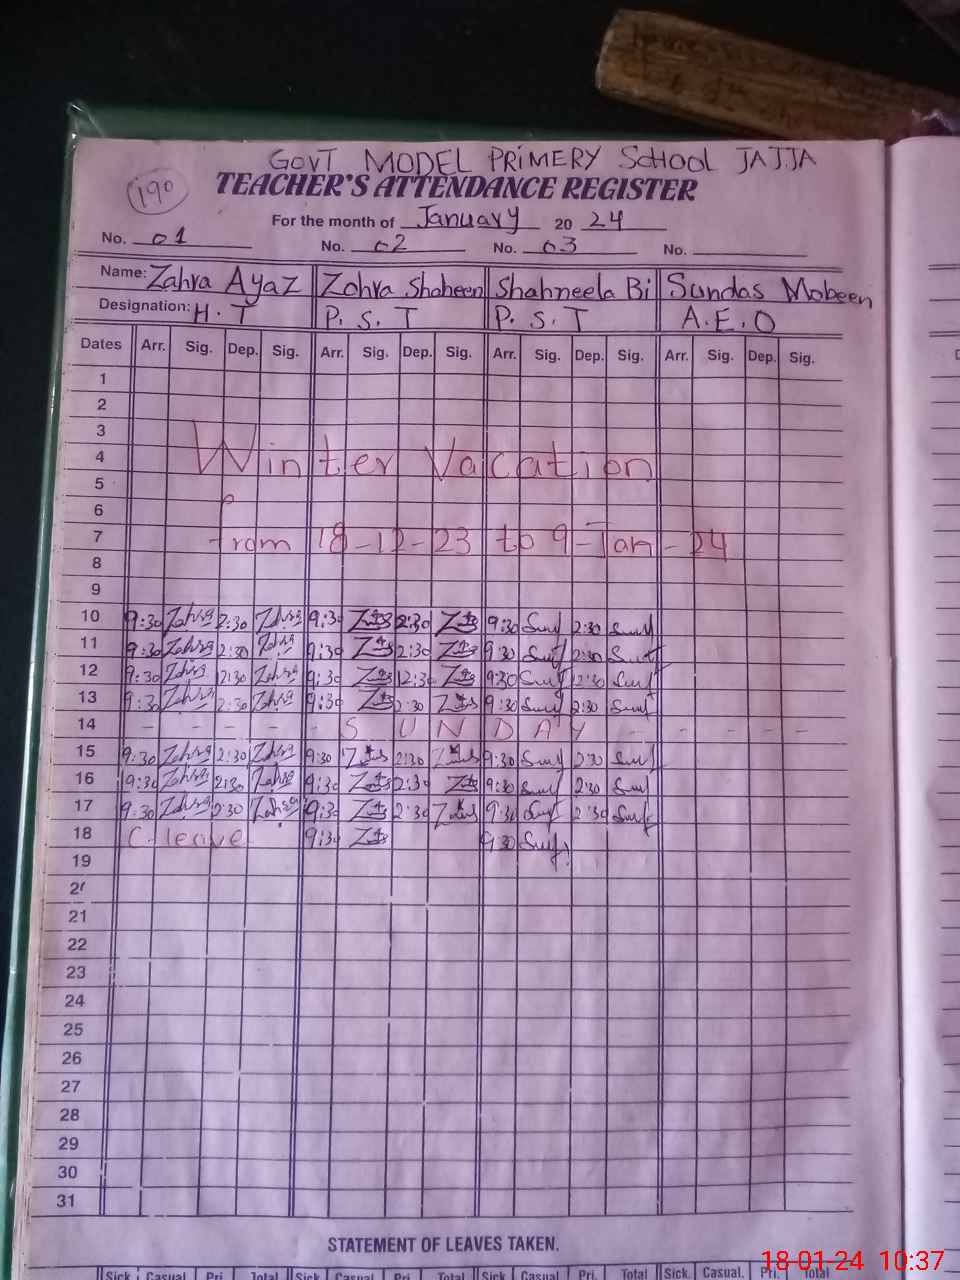 GOVT MODEL PRIMERY SCHOOL JAJJA
190
TEACHER'S ATTENDANCE REGISTER
For the month of January 20 24
No. 01 No. 02 No. 03 No.
Name: Zahra Ayaz Zohra Shaheen Shahneela Bi Sundas Mobeen
Designation: H.T P.S.T P.S.T A.E.O
Dates Arr. Sig. Dep. Sig. Arr. Sig. Dep. Sig. Arr. Sig. Dep. Sig. Arr. Sig. Dep. Sig.
1
2
3
4 Winter Vacation
5
6
7 from 18-12-23 to 9-Jan-24
8
9
10 9:30 Zahra 2:30 Zahra 9:30 2:30 9:30 2:30
11 9:30 Zahra 2:30 Zahra 9:30 2:30 9:30 2:30
12 9:30 Zahra 2:30 Zahra 9:30 2:30 9:30 2:30
13 9:30 Zahra 2:30 Zahra 9:30 2:30 9:30 2:30
14 - - - - - S U N D A Y - - - - -
15 9:30 Zahra 2:30 Zahra 9:30 2:30 9:30 2:30
16 9:30 Zahra 2:30 Zahra 9:30 2:30 9:30 2:30
17 9:30 Zahra 2:30 Zahra 9:30 2:30 9:30 2:30
18 C-leave 9:30 9:30
19
20
21
22
23
24
25
26
27
28
29
30
31
STATEMENT OF LEAVES TAKEN.
Sick Casual Pri. Total Sick. Casual. Pri. Total Sick Casual Pri. Total Sick. Casual. Pri. Total
18-01-24 10:37